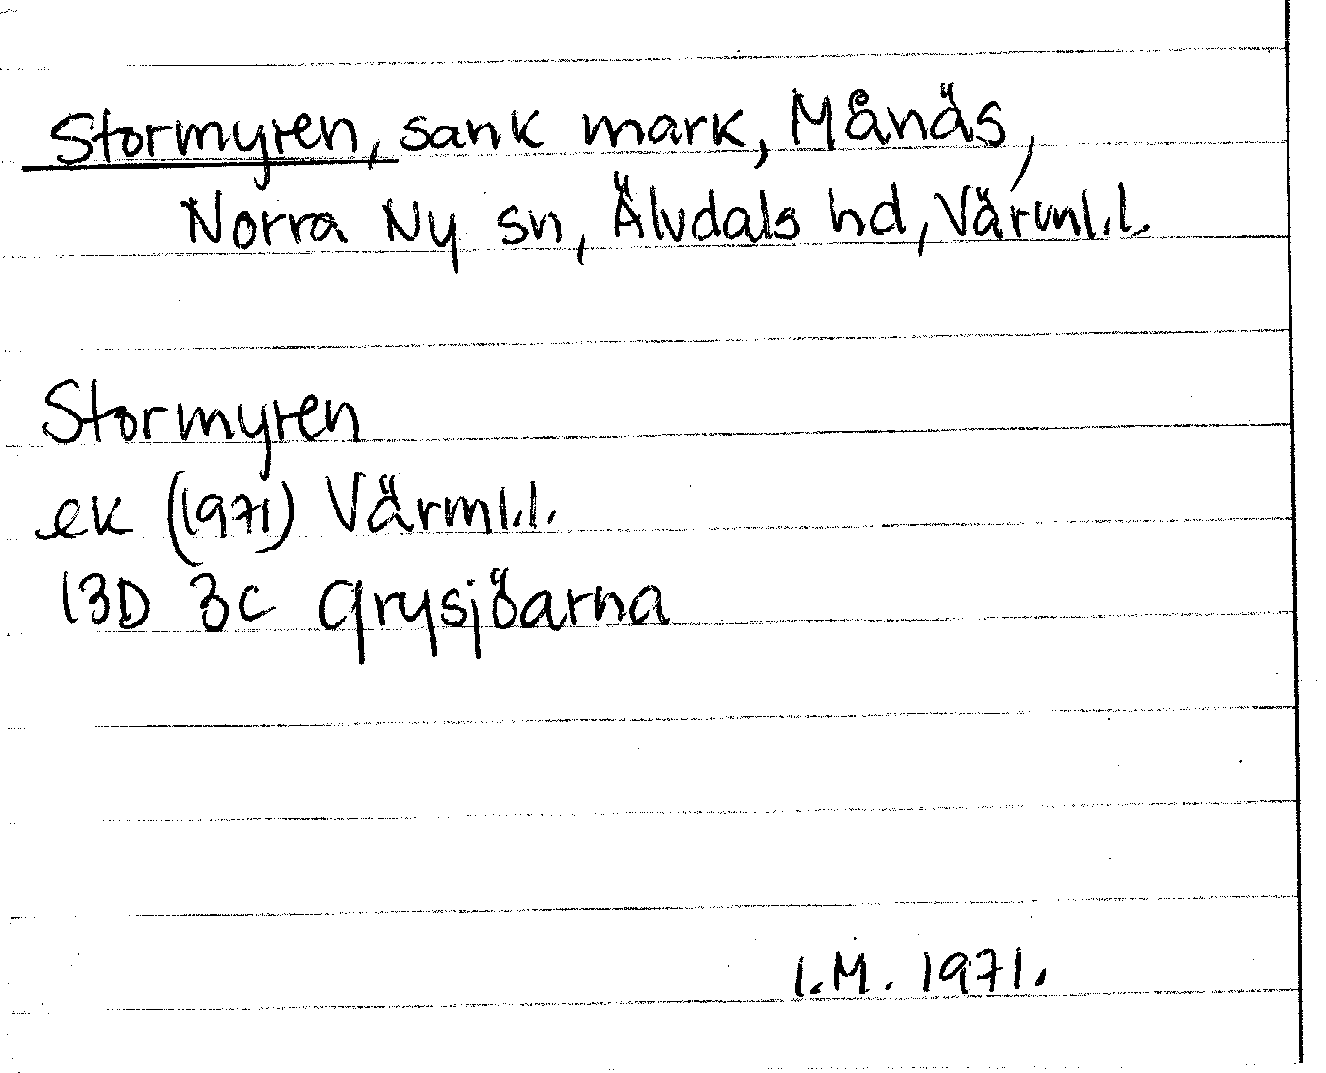 Stormyren, sank mark, Månäs,
Norra Ny sn, Älvdals hd, Värml.l.
Stormyren
ek (1971) Värml.l.
13D 3c Grysjöarna
I.M. 1971.